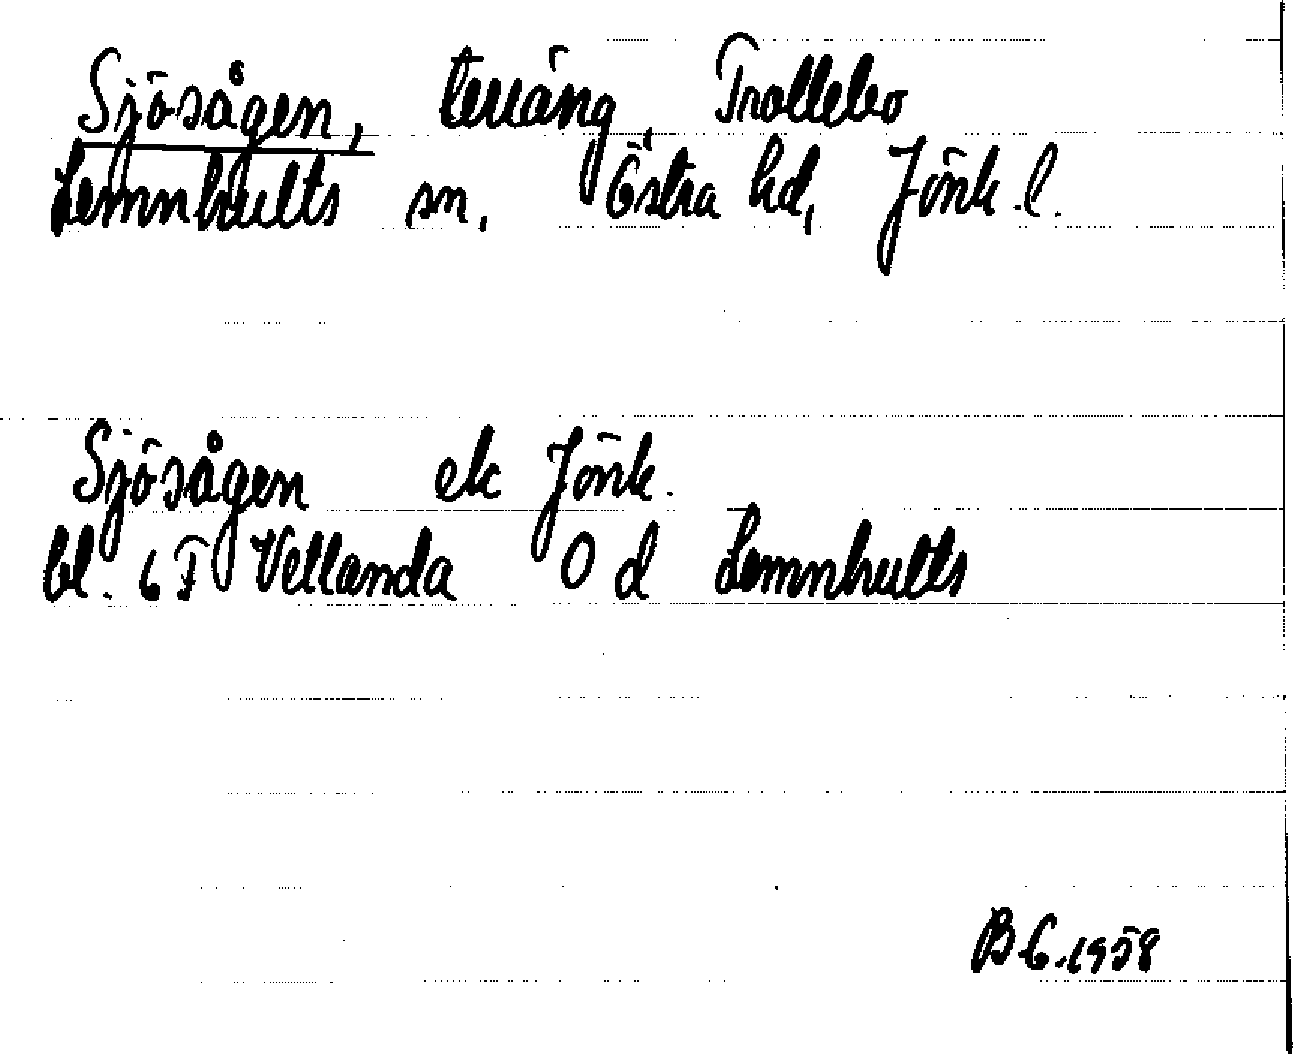 Sjösågen, terräng, Trollebo
Lemnhults sn, Östra hd, Jönk.l.
Sjösågen ek Jönk.
bl. 6 F Vetlanda O d Lemnhults
B G. 1958